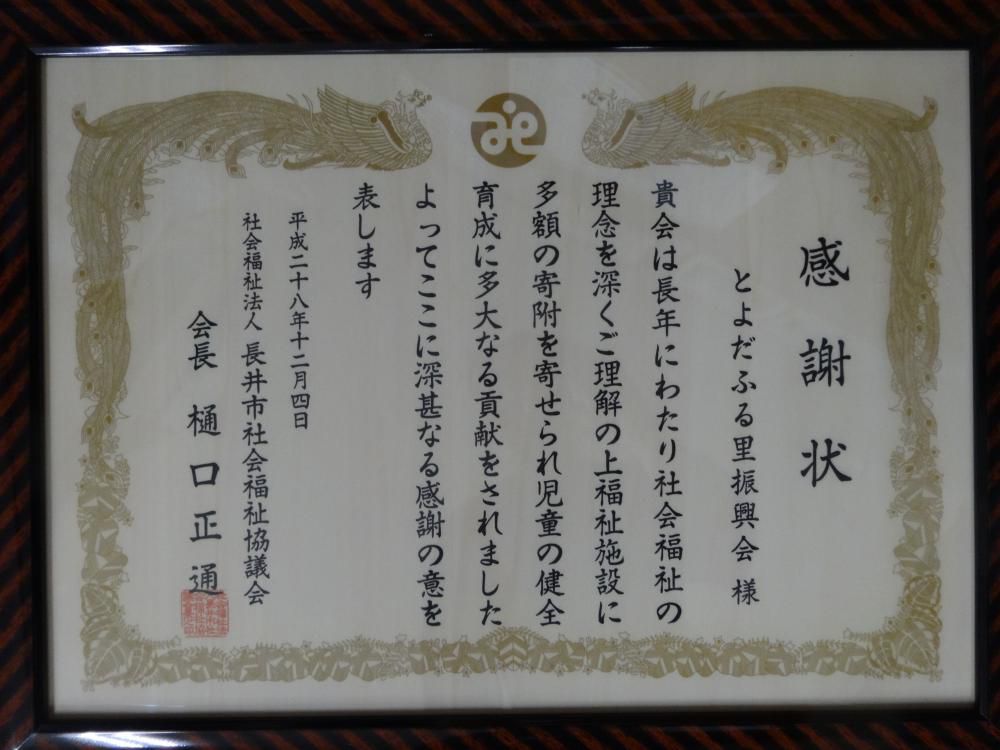 感謝状
とよだふる里振興会 様
貴会は長年にわたり社会福祉の
理念を深くご理解の上福祉施設に
多額の寄附を寄せられ児童の健全
育成に多大なる貢献をされました
よってここに深甚なる感謝の意を
表します
平成二十八年十二月四日
社会福祉法人 長井市社会福祉協議会
会長 樋口正通